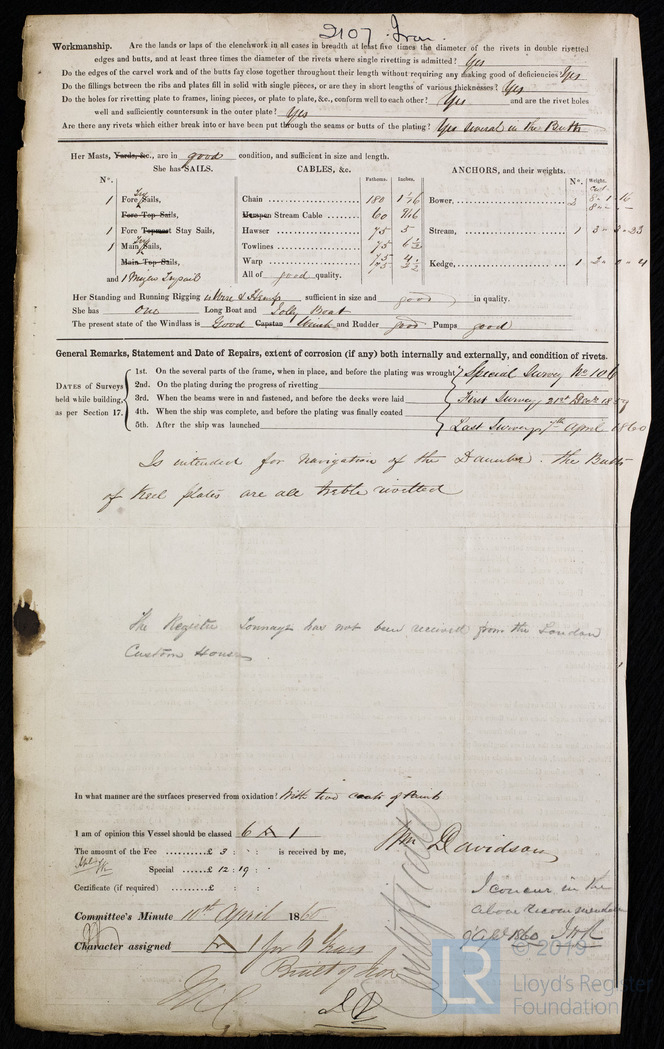 2107 Iron
Workmanship. Are the lands or laps of the clenchwork in all cases in breadth at least five times the diameter of the rivets in double riyetted
edges and butts, and at least three times the diameter of the rivets where single rivetting is admitted? Yes
Do the edges of the carvel work and of the butts fay close together throughout their length without requiring any making good of deficiencies? Yes
Do the fillings between the ribs and plates fill in solid with single pieces, or are they in short lengths of various thicknesses? Yes
Do the holes for rivetting plate to frames, lining pieces, or plate to plate, &c., conform well to each other? Yes and are the rivet holes
well and sufficiently countersunk in the outer plate? Yes
Are there any rivets which either break into or have been put through the seams or butts of the plating? Yes several in the Butts
Her Masts, Yards, &c., are in good condition, and sufficient in size and length.
She has SAILS. CABLES, &c. ANCHORS, and their weights.
N°. Fathoms. Inches. N°. Weight.
1 Fore Try Sails, Chain 180 1 1/16 Bower, 2 8 - 1 - 16
Fore Top Sails, Hempen Stream Cable 60 9/16
1 Fore Topmast Stay Sails, Hawser 75 5 Stream, 1
1 Main Try Sails, Towlines 75 6½
Main Top Sails, Warp 75 Kedge, 1
and 1 Mizen Trysail All of good quality.
Her Standing and Running Rigging Wire & Hemp sufficient in size and good in quality.
She has one Long Boat and Jolly Boat
The present state of the Windlass is Good Capstan Winch and Rudder good Pumps good
General Remarks, Statement and Date of Repairs, extent of corrosion (if any) both internally and externally, and condition of rivets.
DATES of Surveys held while building, as per Section 17.
1st. On the several parts of the frame, when in place, and before the plating was wrought Special Survey No 106
2nd. On the plating during the progress of rivetting
3rd. When the beams were in and fastened, and before the decks were laid First Survey 21st Decr 1859
4th. When the ship was complete, and before the plating was finally coated
5th. After the ship was launched Last Survey 7th April 1860
Is intended for navigation of the Danube. the Butts
of Keel plates are all treble rivetted
The Register Tonnage has not been received from the London
Custom House.
In what manner are the surfaces preserved from oxidation? With two coats of Paint
I am of opinion this Vessel should be classed 6 A 1
The amount of the Fee £ 3 : : is received by me, Wm Davidson
Special £ 12 : 19 :
Certificate (if required) £ :
I concur in the
above recommendation
Committee's Minute 10th April 1860
Character assigned A 1 for 6 Years
Built of Iron
© 2019
LR
Lloyd's Register
Foundation